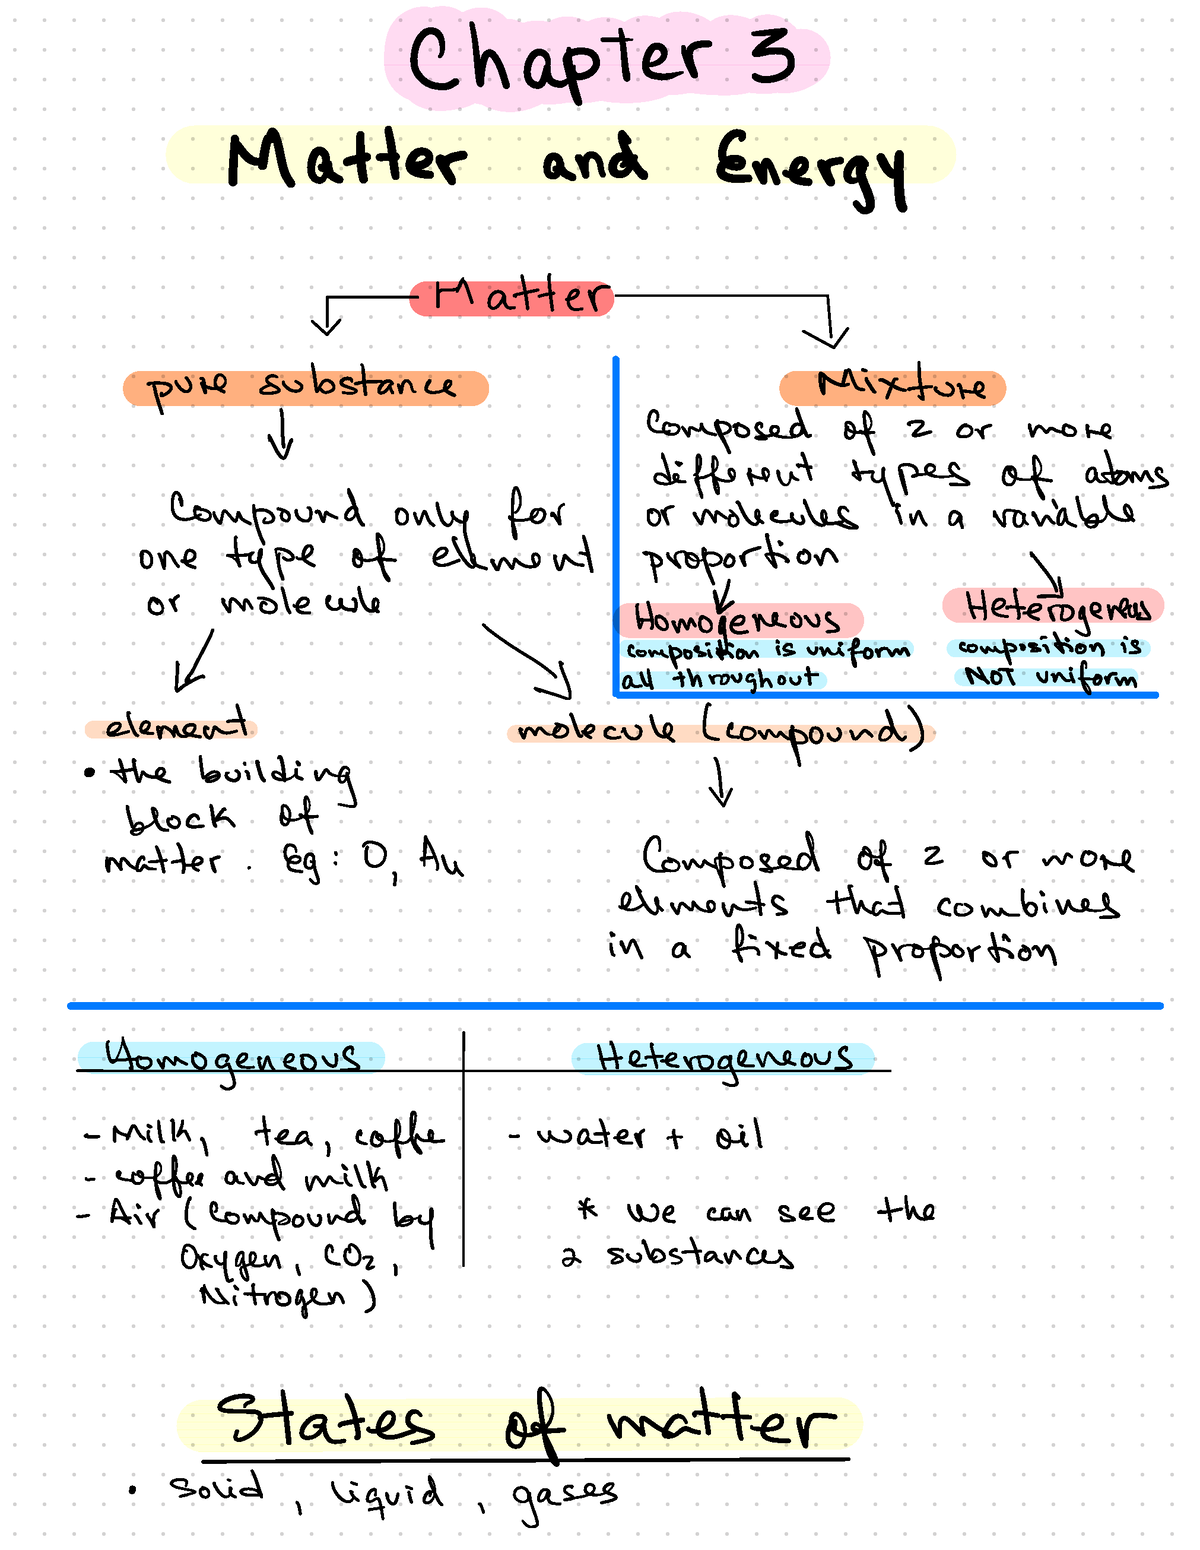 Chapter 3
Matter and Energy
Matter
pure substance
Compound only for
one type of element
or molecule
Mixture
Composed of 2 or more
different types of atoms
or molecules in a variable
proportion
Homogeneous
composition is uniform
all throughout
Heterogeneous
composition is
NOT uniform
element
• the building
block of
matter. Eg: O, Au
molecule (compound)
Composed of 2 or more
elements that combines
in a fixed proportion
Homogeneous
- Milk, tea, coffe
- coffee and milk
- Air (compound by
Oxygen, CO2,
Nitrogen)
Heterogeneous
- water + oil
* we can see the
2 substances
States of matter
• Solid, liquid, gases